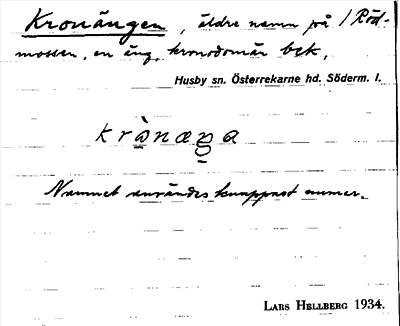 Kronängen, äldre namn på 1 Röd-
mossen, en äng, kronodomän bek.
Husby sn. Österrekarne hd. Söderm. l.
krànæŋa
Namnet användes knappast numer.
LARS HELLBERG 1934.